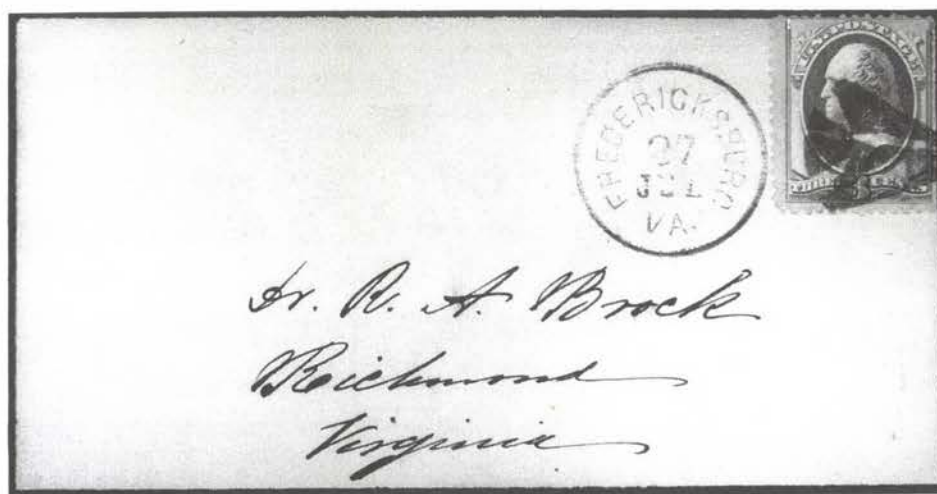 U.S. POSTAGE
FREDERICKSBURG
27
JUL
VA.
Dr. R. A. Brock
Richmond
Virginia